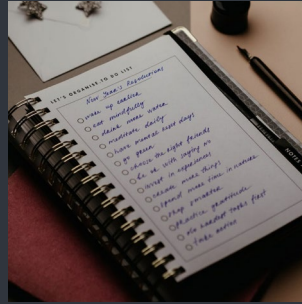 LET'S ORGANISE TO DO LIST
New Year's Resolutions
wake up earlier
eat mindfully
drink more water
meditate daily
have mental rest days
go green
choose the right friends
be ok with saying no
invest in experiences
create more things
spend more time in nature
shop smarter
practice gratitude
do hardest tasks first
take action
NOTES